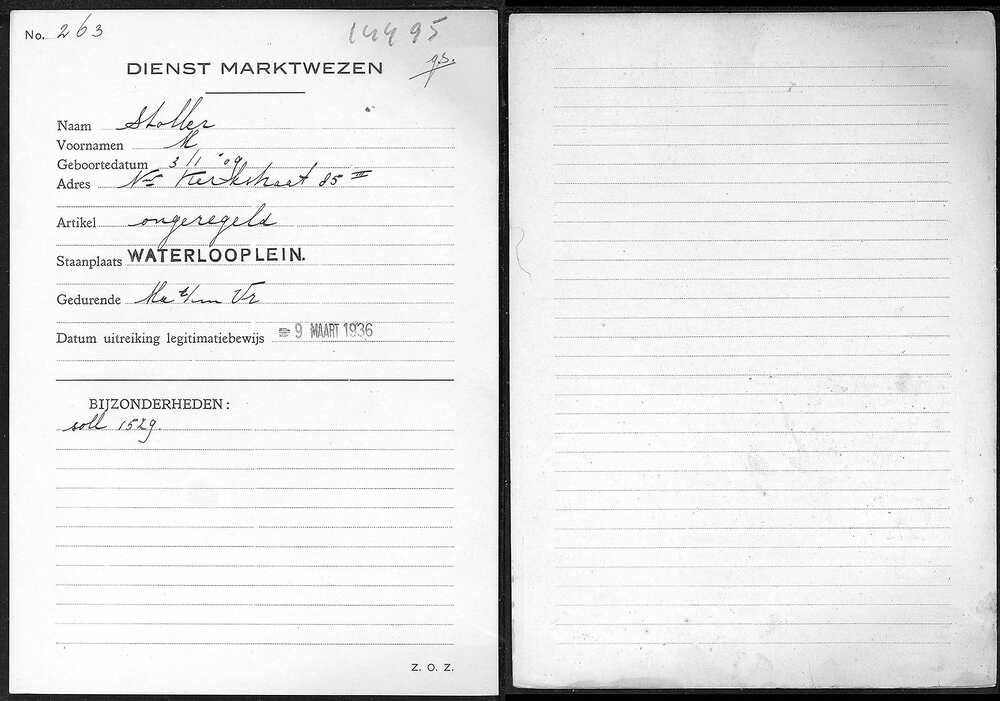 No. 263
14495
g.s.
DIENST MARKTWEZEN
Naam Stoller
Voornamen M
Geboortedatum 3/1 '09
Adres Nwe Kerkstraat 85 III
Artikel ongeregeld
Staanplaats WATERLOOPLEIN.
Gedurende Ma t/m Vr
Datum uitreiking legitimatiebewijs = 9 MAART 1936
BIJZONDERHEDEN:
soll 1529.
Z. O. Z.